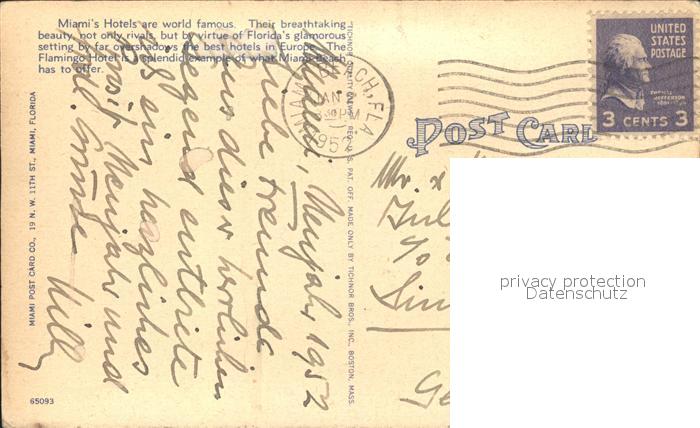 Miami's Hotels are world famous. Their breathtaking
beauty, not only rivals, but by virtue of Florida's glamorous
setting by far overshadows the best hotels in Europe. The
Flamingo Hotel is a splendid example of what Miami Beach
has to offer.
MIAMI POST CARD CO., 19 N. W. 11TH ST., MIAMI, FLORIDA
65093
Miami, Neujahr 1952
Liebe Freunde
Aus dieser herrlichen
Gegend entbiete
ein herzliches
Prosit Neujahr und
Grüsse Willy
REG. U. S. PAT. OFF. MADE ONLY BY TICHNOR BROS., INC., BOSTON, MASS.
MIAMI BEACH, FLA
JAN
PM
1952
UNITED
STATES
POSTAGE
THOMAS
JEFFERSON
3 CENTS 3
POST CARD
Mr. x
privacy protection
Datenschutz
Ge